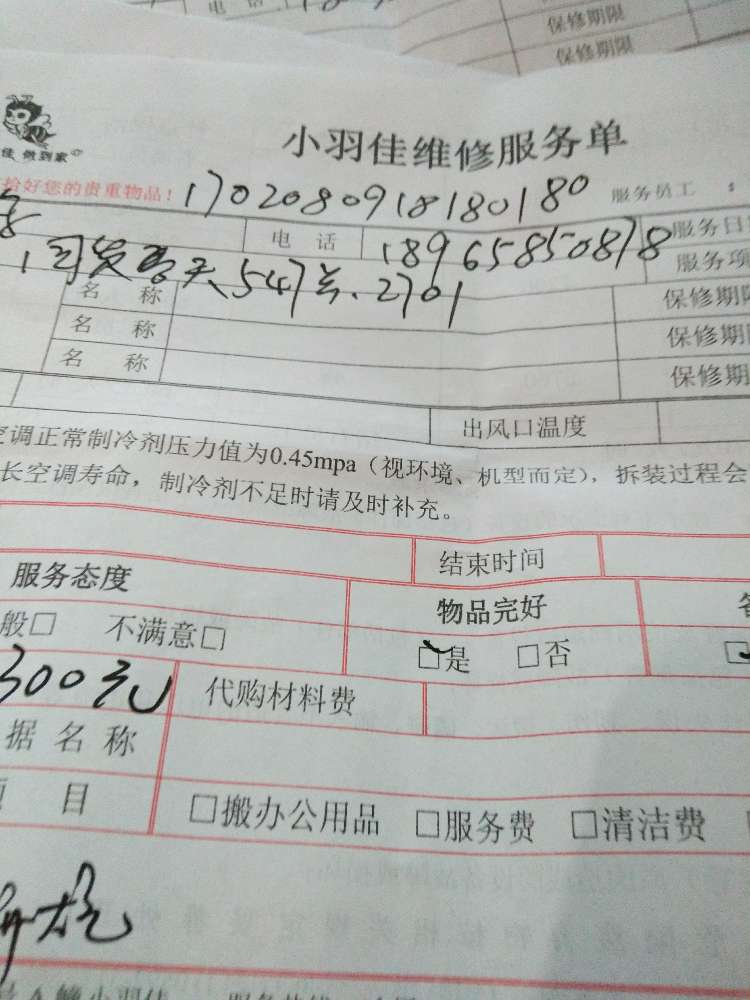 电 话
保修期限
保修期限
佳 做到家
小羽佳维修服务单
给好您的贵重物品! 1702080918180180 服务员工 :
电 话 18965850878 服务日
547 2701 服务项
名 称 保修期限
名 称 保修期
名 称 保修期
出风口温度
空调正常制冷剂压力值为0.45mpa(视环境、机型而定),拆装过程会
长空调寿命,制冷剂不足时请及时补充。
结束时间
服务态度 物品完好
般□ 不满意□ □是 □否
300元 代购材料费
据 名 称
项 目 □搬办公用品 □服务费 □清洁费